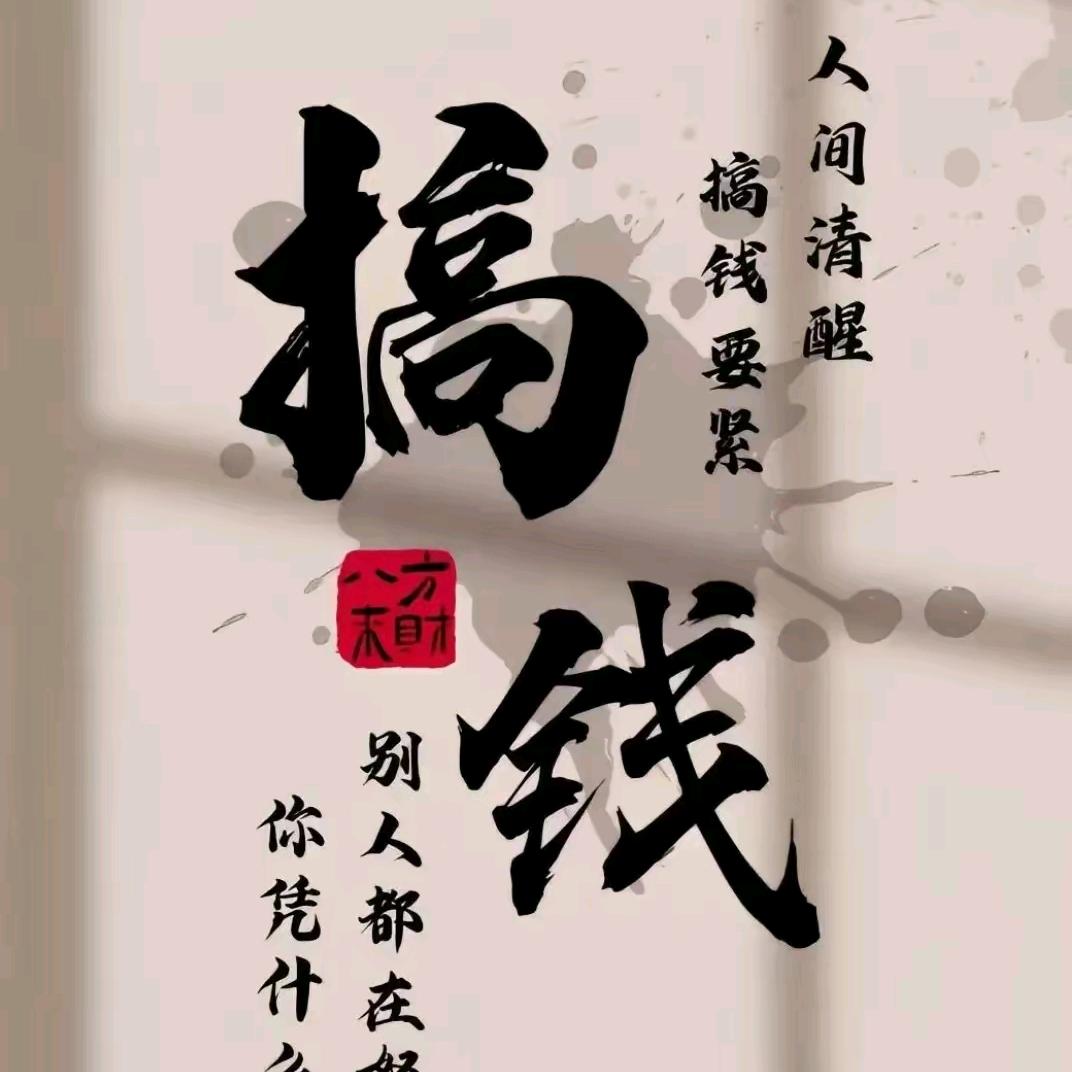 人间清醒
搞钱要紧
搞钱
八方
来财
别人都在努
你凭什么